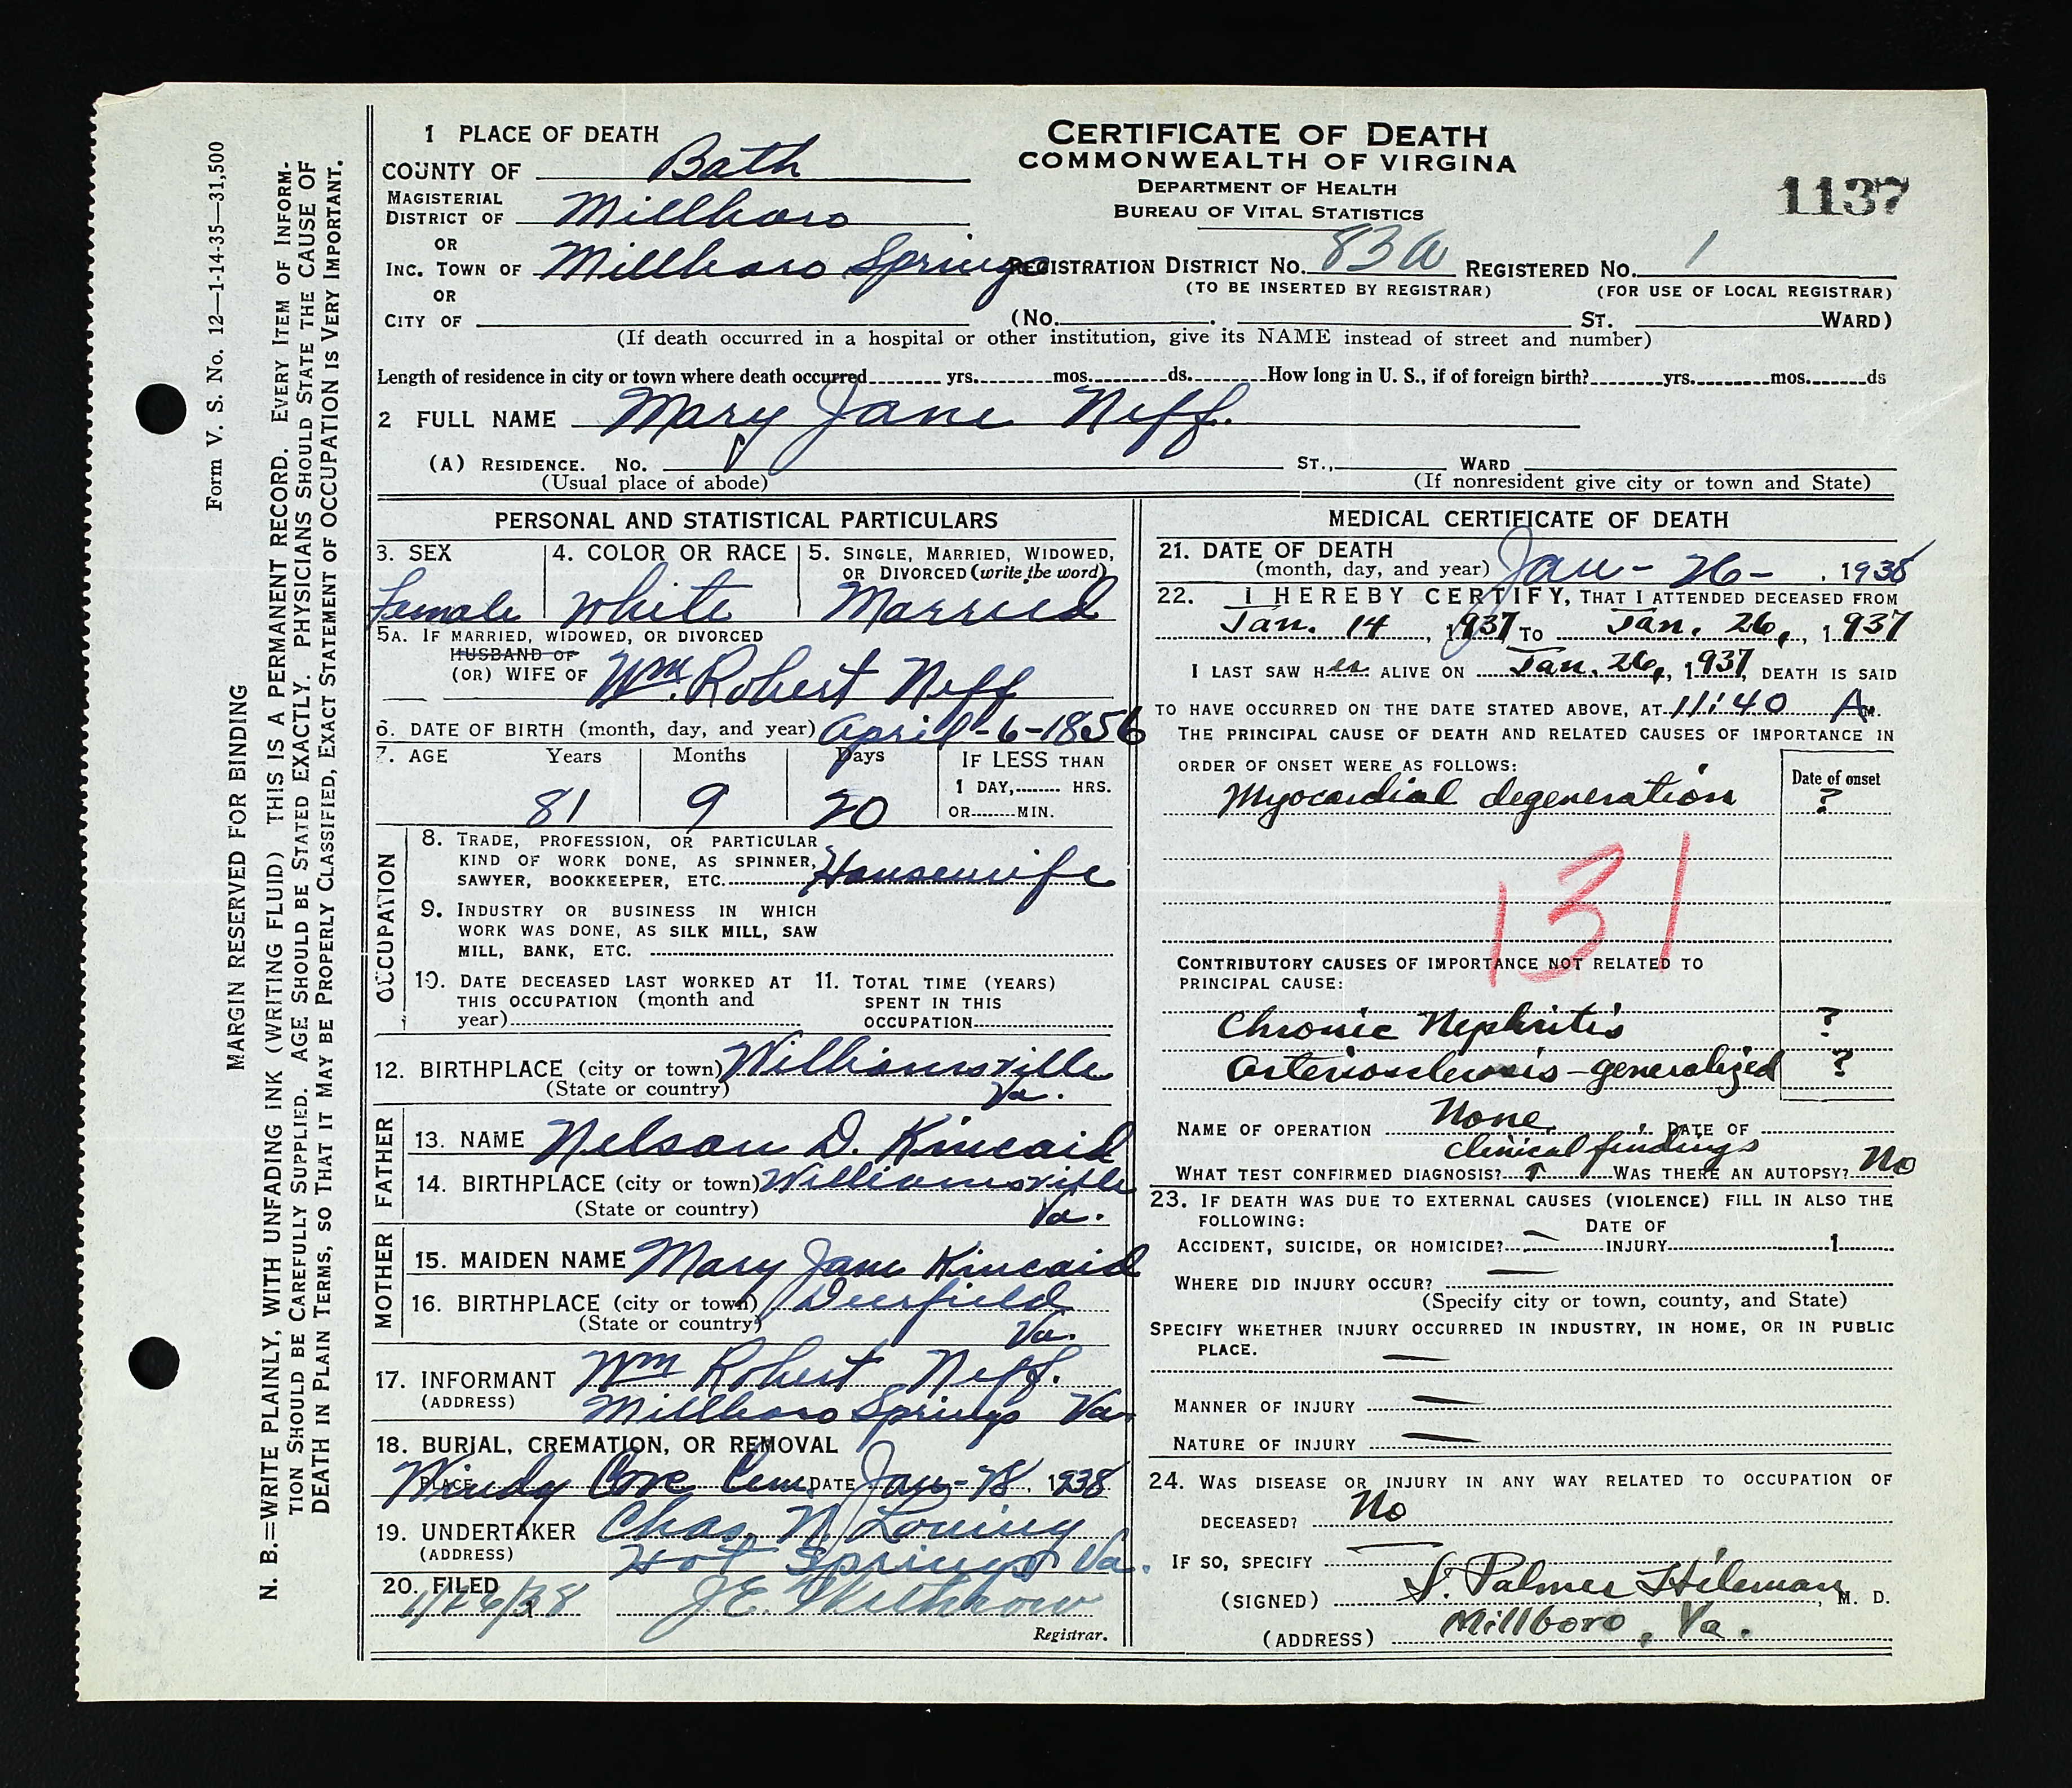 Form V. S. No. 12—1-14-35—31,500
MARGIN RESERVED FOR BINDING
N. B.=WRITE PLAINLY, WITH UNFADING INK (WRITING FLUID) THIS IS A PERMANENT RECORD. EVERY ITEM OF INFORM-
TION SHOULD BE CAREFULLY SUPPLIED. AGE SHOULD BE STATED EXACTLY. PHYSICIANS SHOULD STATE THE CAUSE OF
DEATH IN PLAIN TERMS, SO THAT IT MAY BE PROPERLY CLASSIFIED, EXACT STATEMENT OF OCCUPATION IS VERY IMPORTANT.
CERTIFICATE OF DEATH
COMMONWEALTH OF VIRGINA
DEPARTMENT OF HEALTH
BUREAU OF VITAL STATISTICS
1137
1 PLACE OF DEATH
COUNTY OF Bath
MAGISTERIAL DISTRICT OF Millboro
OR
INC. TOWN OF Millboro Springs REGISTRATION DISTRICT NO. 83A REGISTERED NO. 1
(TO BE INSERTED BY REGISTRAR) (FOR USE OF LOCAL REGISTRAR)
OR
CITY OF (No. ST. WARD)
(If death occurred in a hospital or other institution, give its NAME instead of street and number)
Length of residence in city or town where death occurred yrs. mos. ds. How long in U. S., if of foreign birth? yrs. mos. ds
2 FULL NAME Mary Jane Neff.
(A) RESIDENCE. NO. ST., WARD
(Usual place of abode) (If nonresident give city or town and State)
PERSONAL AND STATISTICAL PARTICULARS
3. SEX 4. COLOR OR RACE 5. SINGLE, MARRIED, WIDOWED,
OR DIVORCED (write the word)
Female White Married
5A. IF MARRIED, WIDOWED, OR DIVORCED
HUSBAND OF
(OR) WIFE OF Wm. Robert Neff
6. DATE OF BIRTH (month, day, and year) April-6-1856
7. AGE Years Months Days IF LESS THAN
1 DAY, HRS.
81 9 20 OR MIN.
OCCUPATION
8. TRADE, PROFESSION, OR PARTICULAR
KIND OF WORK DONE, AS SPINNER,
SAWYER, BOOKKEEPER, ETC. Housewife
9. INDUSTRY OR BUSINESS IN WHICH
WORK WAS DONE, AS SILK MILL, SAW
MILL, BANK, ETC.
10. DATE DECEASED LAST WORKED AT
THIS OCCUPATION (month and
year)
11. TOTAL TIME (YEARS)
SPENT IN THIS
OCCUPATION
12. BIRTHPLACE (city or town) Williamsville
(State or country) Va.
FATHER
13. NAME Nelson D. Kincaid
14. BIRTHPLACE (city or town) Williamsville
(State or country) Va.
MOTHER
15. MAIDEN NAME Mary Jane Kincaid
16. BIRTHPLACE (city or town) Deerfield
(State or country) Va.
17. INFORMANT Wm Robert Neff.
(ADDRESS) Millboro Springs Va
18. BURIAL, CREMATION, OR REMOVAL
PLACE Windy Cove Cem. DATE Jan-28, 1938
19. UNDERTAKER Chas. N. Loving
(ADDRESS) Hot Springs Va.
20. FILED
1/26/38 J.E. Withrow
Registrar.
MEDICAL CERTIFICATE OF DEATH
21. DATE OF DEATH
(month, day, and year) Jan-26-, 1938
22. I HEREBY CERTIFY, THAT I ATTENDED DECEASED FROM
Jan. 14, 1937 TO Jan. 26, 1937
I LAST SAW Her ALIVE ON Jan. 26, 1937, DEATH IS SAID
TO HAVE OCCURRED ON THE DATE STATED ABOVE, AT 11:40 A M.
THE PRINCIPAL CAUSE OF DEATH AND RELATED CAUSES OF IMPORTANCE IN
ORDER OF ONSET WERE AS FOLLOWS: Date of onset
Myocardial degeneration ?
131
CONTRIBUTORY CAUSES OF IMPORTANCE NOT RELATED TO
PRINCIPAL CAUSE:
Chronic Nephritis ?
Arteriosclerosis-generalized ?
NAME OF OPERATION None. DATE OF
clinical findings
WHAT TEST CONFIRMED DIAGNOSIS? WAS THERE AN AUTOPSY? No
23. IF DEATH WAS DUE TO EXTERNAL CAUSES (VIOLENCE) FILL IN ALSO THE
FOLLOWING:
ACCIDENT, SUICIDE, OR HOMICIDE? — DATE OF INJURY 1
WHERE DID INJURY OCCUR? —
(Specify city or town, county, and State)
SPECIFY WHETHER INJURY OCCURRED IN INDUSTRY, IN HOME, OR IN PUBLIC
PLACE. —
MANNER OF INJURY —
NATURE OF INJURY —
24. WAS DISEASE OR INJURY IN ANY WAY RELATED TO OCCUPATION OF
DECEASED? No
IF SO, SPECIFY —
(SIGNED) S. Palmer Hileman, M. D.
(ADDRESS) Millboro, Va.